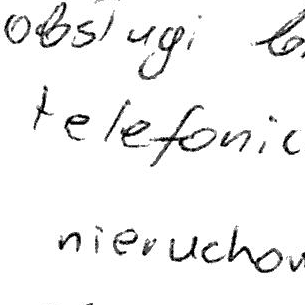 obsługi b
telefonic
nierucho